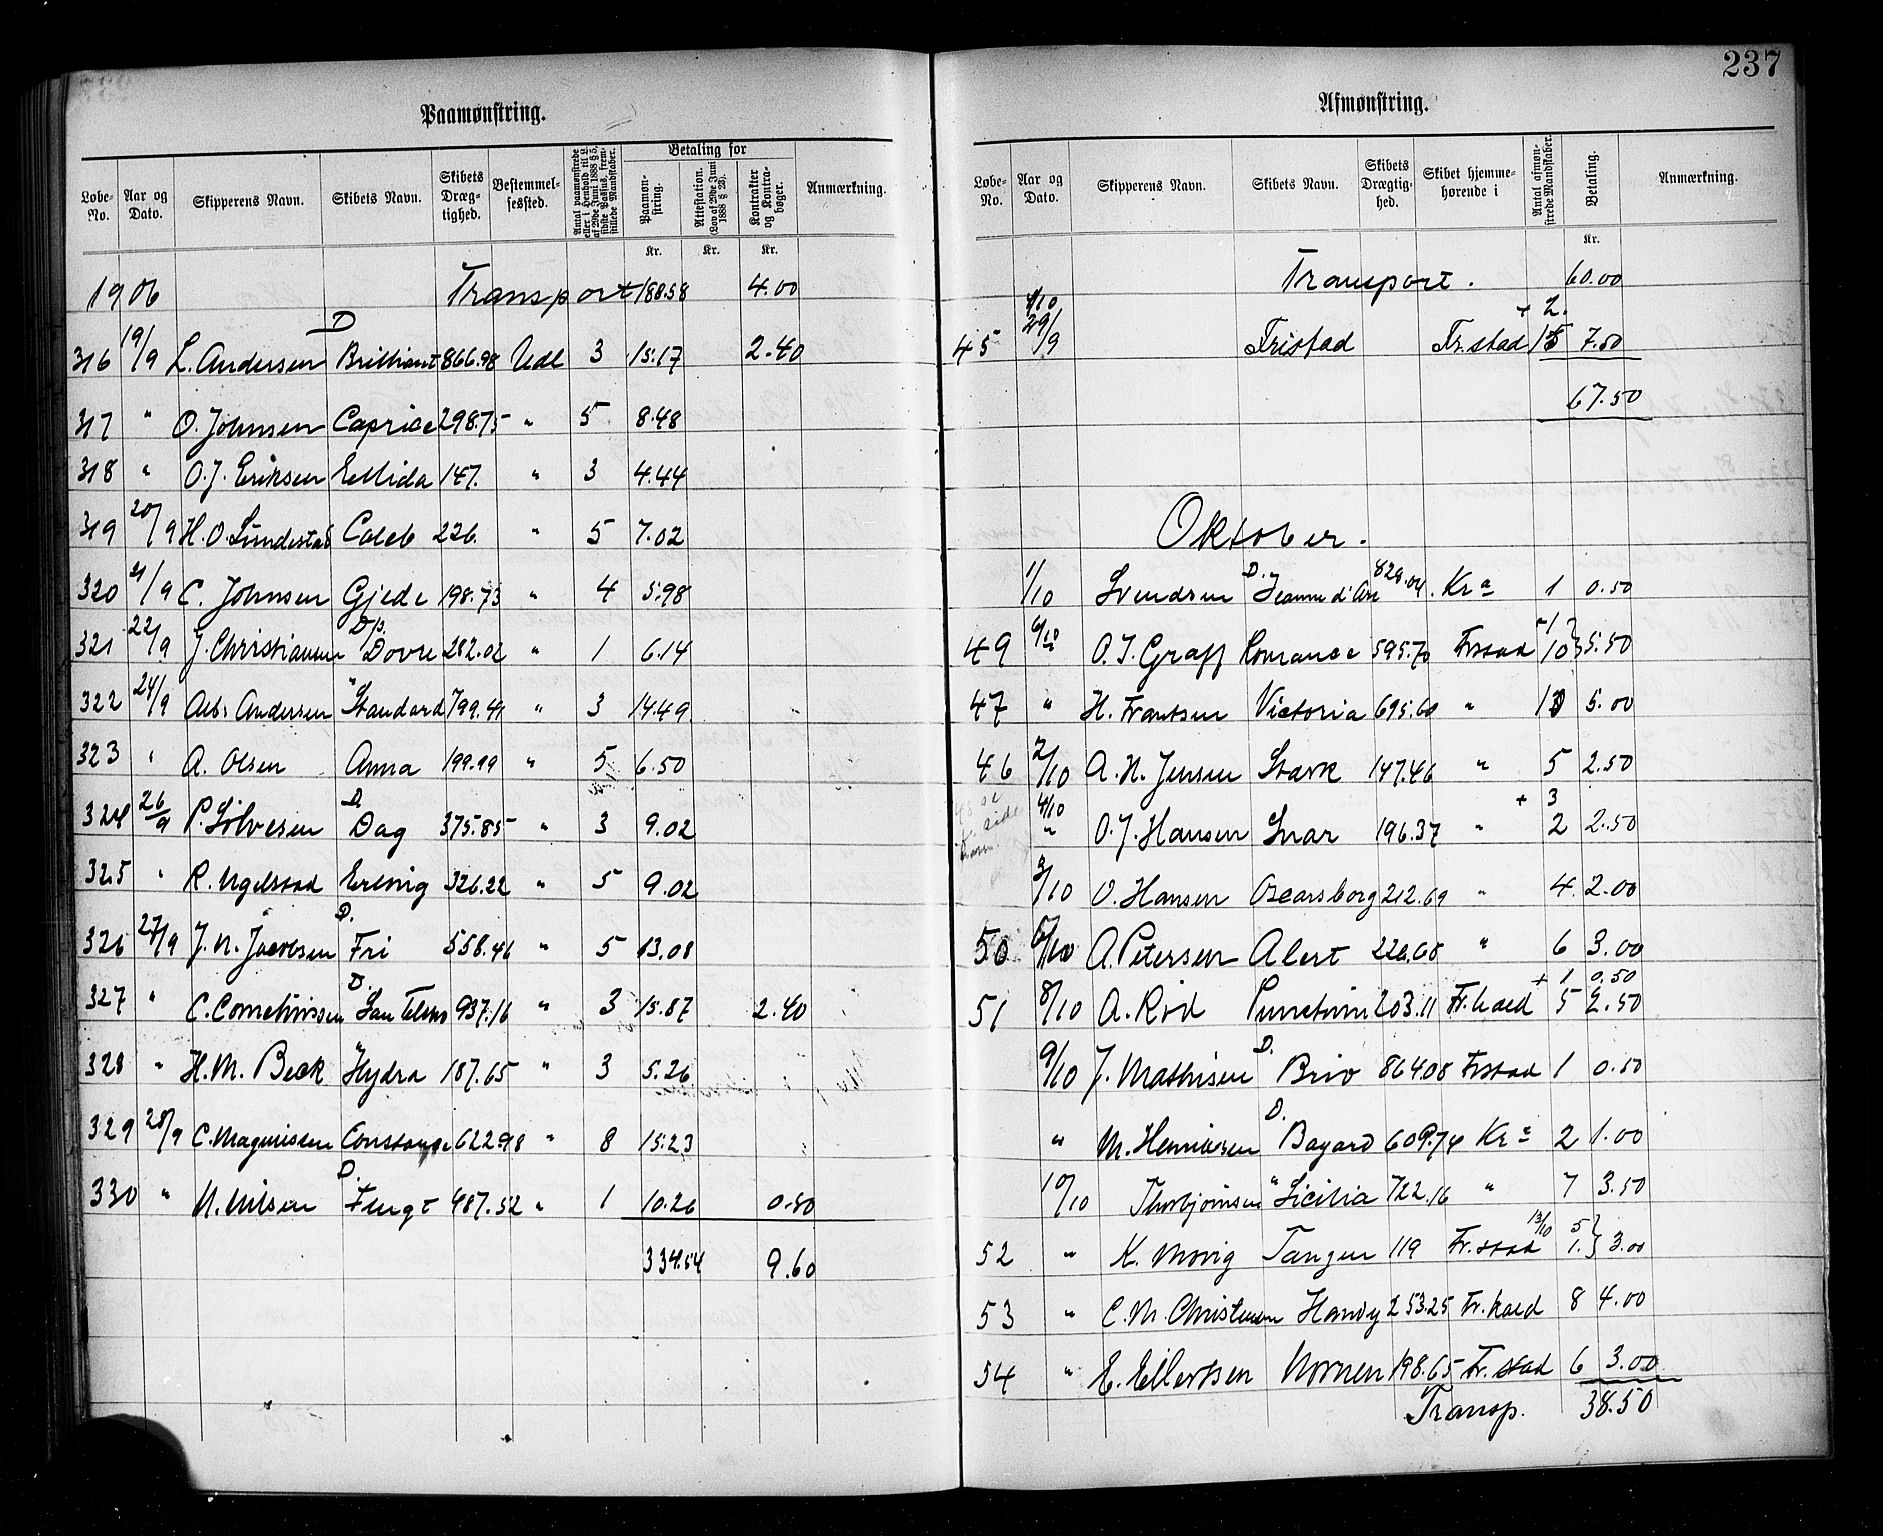 237
Paamønstring.
Løbe-No. Aar og Dato. Skipperens Navn. Skibets Navn. Skibets Dræg-tighed. Bestemmel-sessted. Antal paamønstrede eller i Henhold til L. af 29de Juni 1888 § 5, sidste Passus, frem-stillede Mandskaber. Betaling for Paamøn-string. Attestation. (Lov af 29de Juni 1888 § 23). Kontrakter og Kontra-bøger. Anmærkning.
Kr. Kr. Kr.
1906 Transport 188.58 4.00
D
316 19/9 L. Andersen Brilliant 866.98 Udl 3 15.17 2.40
317 " O. Johnsen Caprice 298.75 " 5 8.48
318 " O.J. Eriksen Ellida 147. " 3 4.44
319 20/9 H.O. Lundestad Caleb 226. " 5 7.02
320 21/9 C. Johnsen Gjede 198.73 " 4 5.98
321 22/9 J. Christiansen D/p. Dovre 282.02 " 1 6.14
322 24/9 Alb. Andersen "Standard 799.41 " 3 14.49
323 " A. Olsen Anna 199.99 " 5 6.50
324 26/9 P. Sølvesen D. Dag 375.85 " 3 9.02
325 " R. Ugelstad Erlvig 326.22 " 5 9.02
326 27/9 J.N. Jacobsen D. Fri 558.46 " 5 13.08
327 " C. Corneliussen D. San Telmo 937.16 " 3 15.87 2.40
328 " H.M. Beck "Hydra 187.65 " 3 5.26
329 28/9 C. Magnussen Constance 622.98 " 8 15.23
330 " N. Nilsen D. Flugt 487.52 " 1 10.26 0.80
334.54 9.60
Afmønstring.
Løbe-No. Aar og Dato. Skipperens Navn. Skibets Navn. Skibets Drægtig-hed. Skibet hjemme-hørende i Antal afmøn-strede Mandskaber. Betaling. Anmærkning.
Kr.
Transport. 60.00
4/10 + 2.
45 29/9 Fristad Fr.stad 15 7.50
67.50
Oktober.
1/10 Svendsen D. Jeanne d'Arc 828.04 Kra 1 0.50
49 6/10 O.T. Graff Romance 595.70 Frstad 1 10 } 5.50
47 " H. Frantsen Victoria 695.60 " 10 5.00
46 2/10 A.N. Jensen Stærk 147.46 " 5 2.50
4/10 + 3
" O.J. Hansen Snar 196.37 " 2 2.50
3/10 O. Hansen Oscarsborg 212.69 " 4 2.00
50 6/10 A. Petersen Alert 226.68 " 6 3.00
+ 1 0.50
51 8/10 A. Rød 203.11 Fr.hald 5 2.50
9/10 J. Mathisen D. Brio 864.08 Frstad 1 0.50
" M. Henriksen D. Bayard 609.74 Kra 2 1.00
10/10 Thorbjørnsen "Sicilia 722.16 " 7 3.50
52 " K. Movig Tangen 119 Fr.stad 13/10 5 1. } 3.00
53 " C.M. Christensen Handy 253.25 Fr.hald 8 4.00
54 " E. Eilertsen Nornen 198.65 Fr.stad 6 3.00
Transp. 38.50